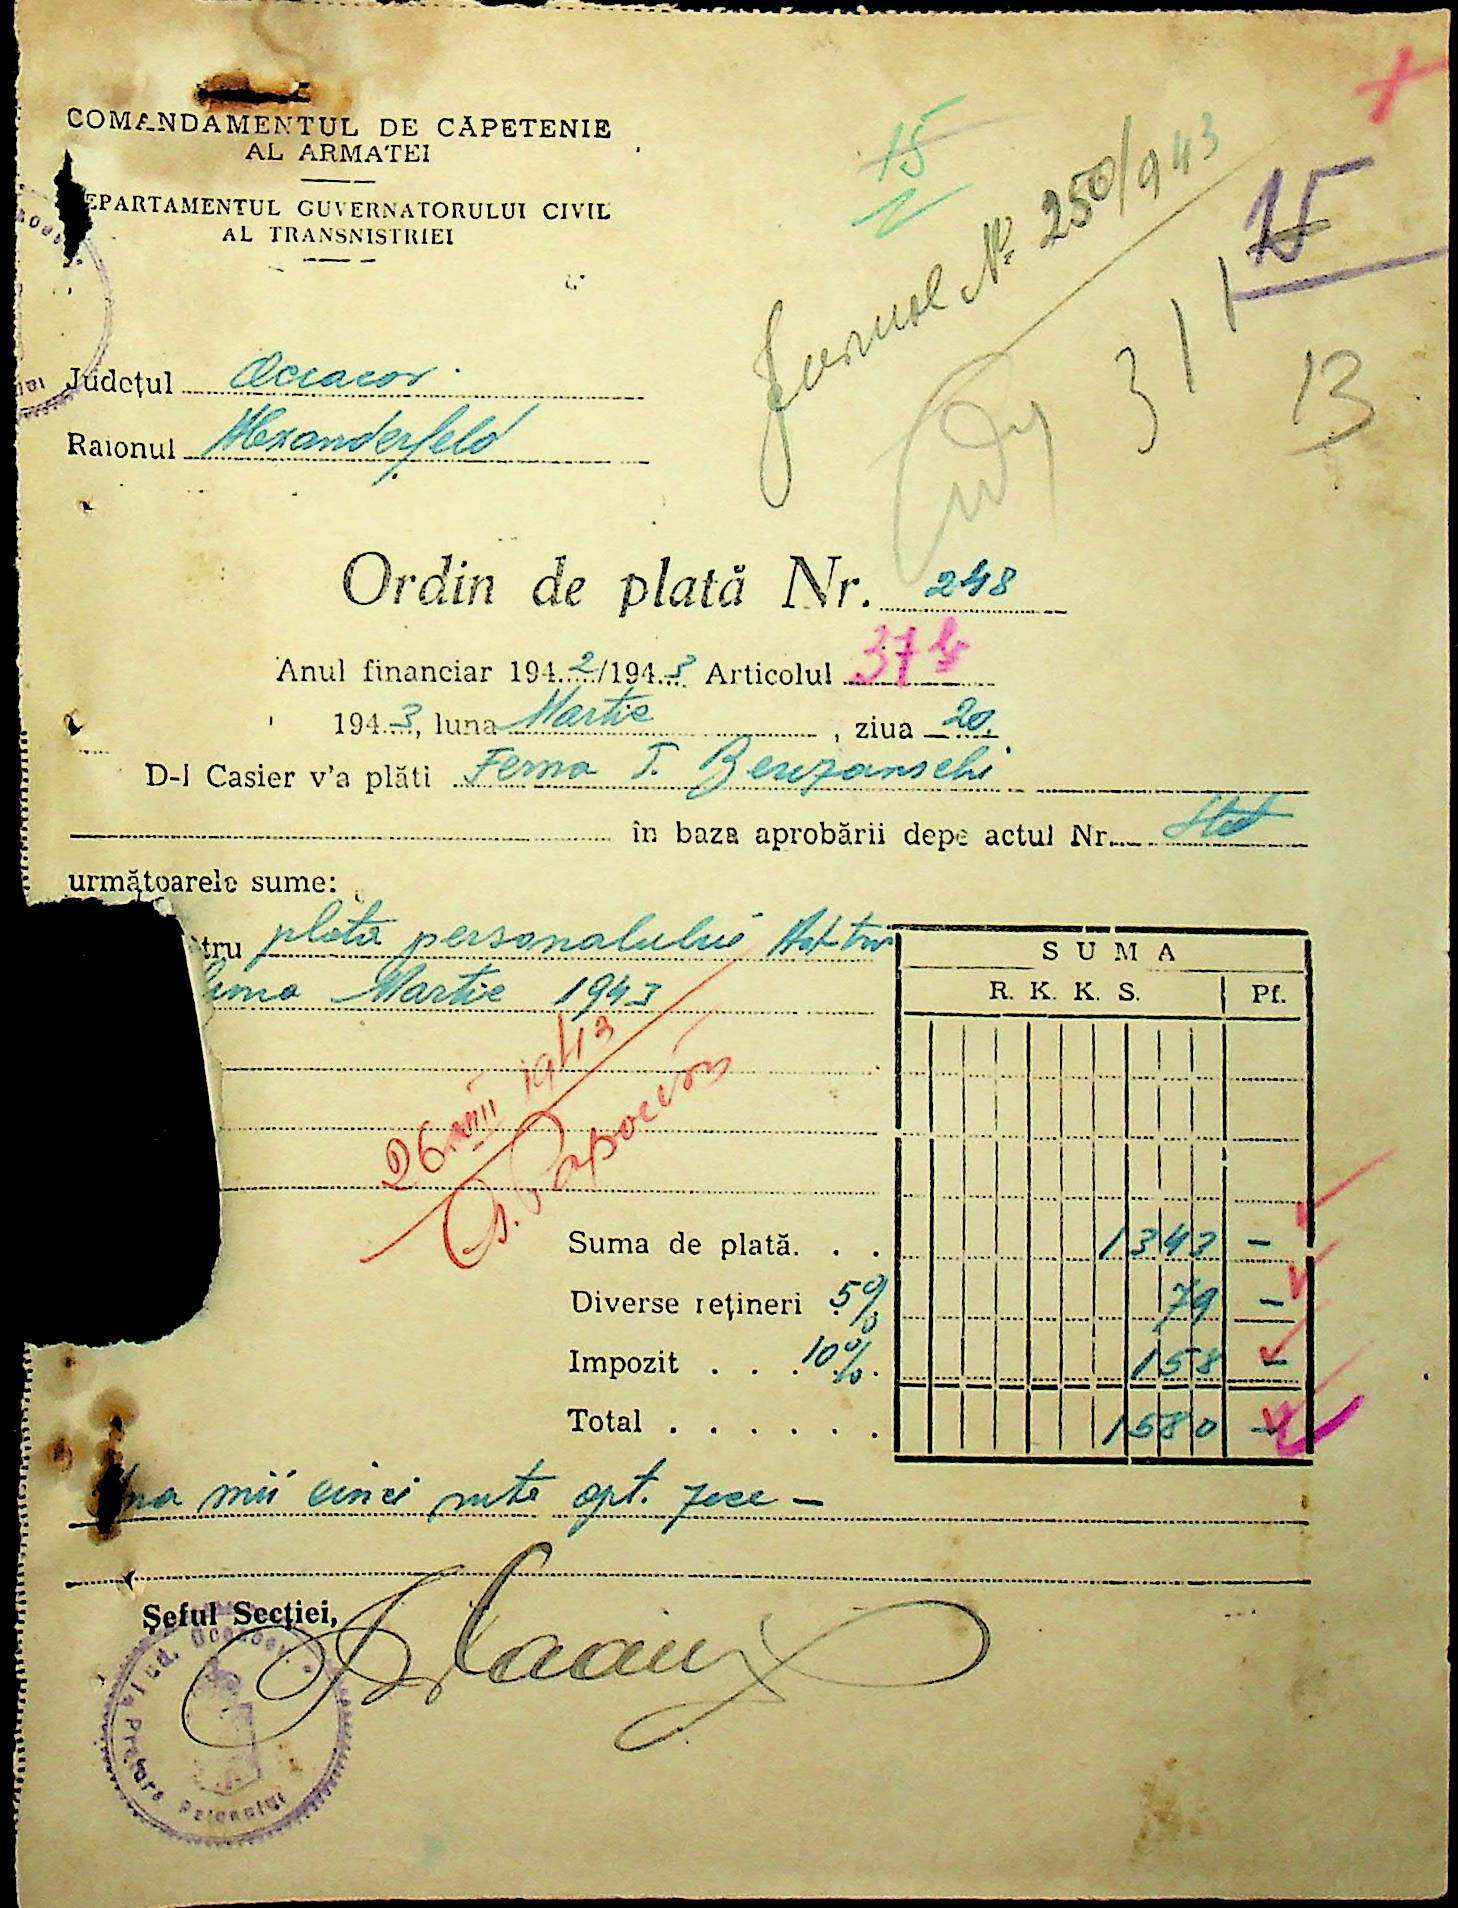 COMANDAMENTUL DE CAPETENIE
AL ARMATEI
DEPARTAMENTUL GUVERNATORULUI CIVIL
AL TRANSNISTRIEI
15
Jurnal Nr. 250/943
15
3 1 1
13
Județul Oceacov
Raionul Alexanderfeld
Ordin de plată Nr. 248
Anul financiar 1942/1943 Articolul 374
1943, luna Martie, ziua 20.
D-l Casier v'a plăti Ferma T.
în baza aprobării depe actul Nr. Stat
următoarele sume:
tru plata personalului
luna Martie 1943
SUMA
R. K. K. S. Pf.
26 III 1943
Suma de plată. . . 1343 —
Diverse rețineri 5% 79 —
Impozit . . . 10% . 158 —
Total . . . . . . 1580 —
Una mii cinci sute opt zece —
Șeful Secției,
Jud. Oceacov
Pretura Raionului